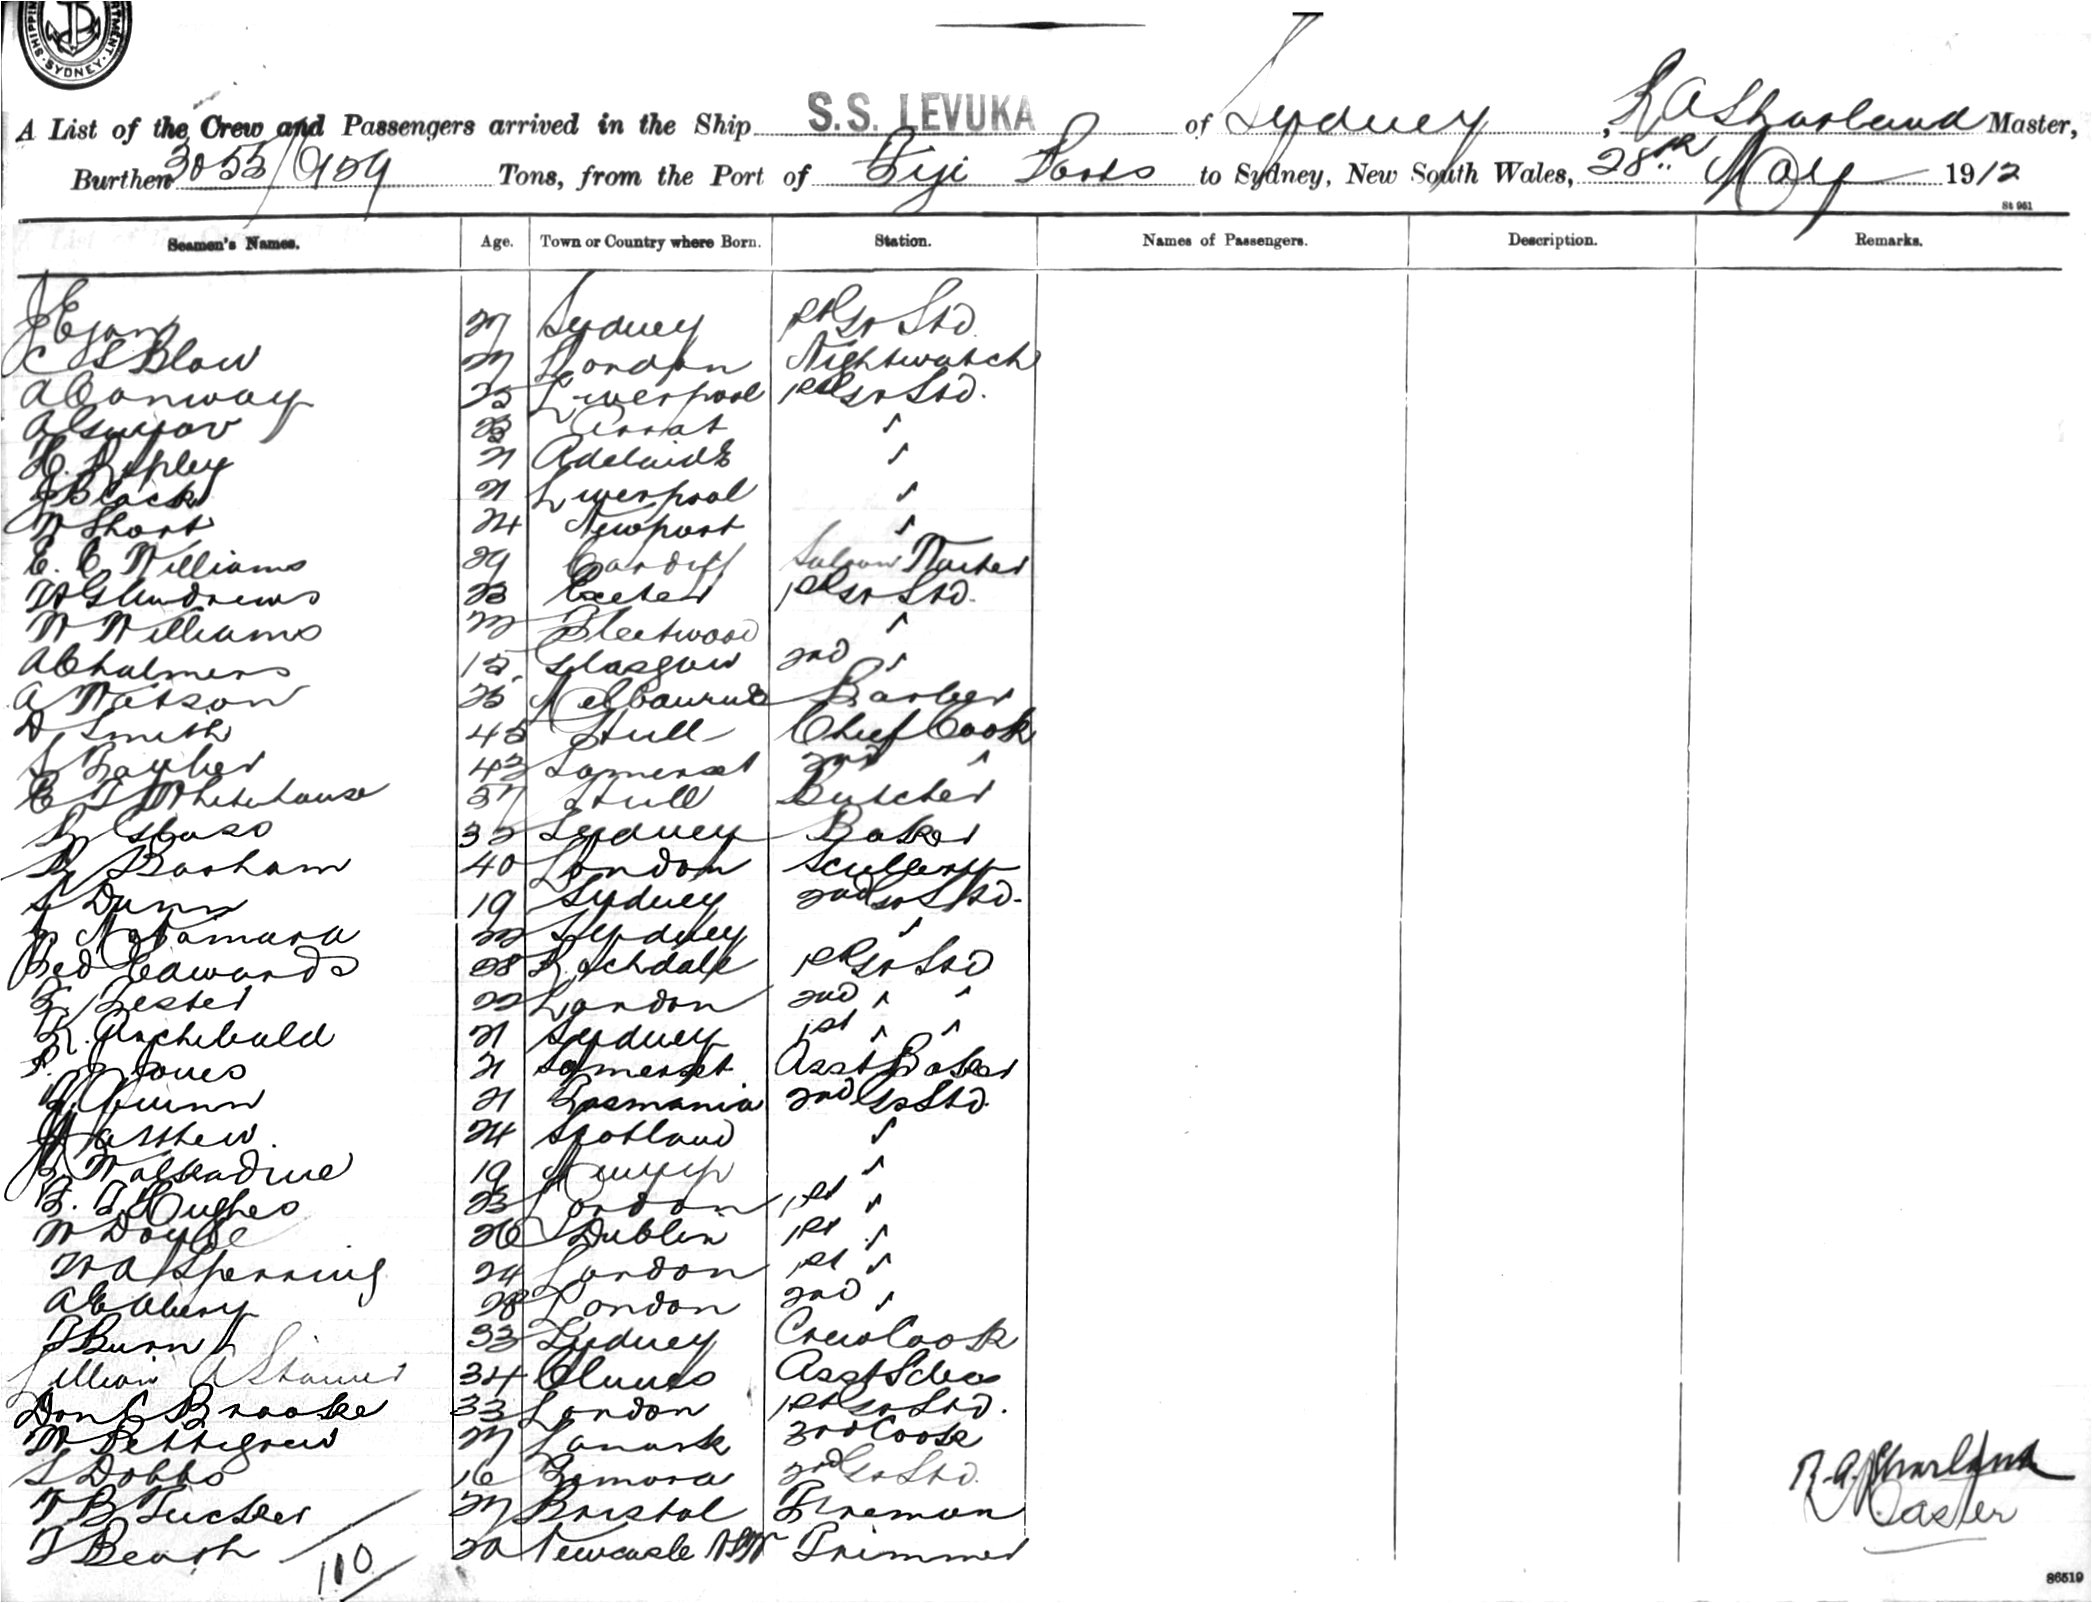 SHIPPING DEPARTMENT SYDNEY
A List of the Crew and Passengers arrived in the Ship S.S. LEVUKA of Sydney, R A Sharland Master,
Burthen Tons, from the Port of Fiji Ports to Sydney, New South Wales, 28th May 1912
St 961
Seamen's Names. Age. Town or Country where Born. Station. Names of Passengers. Description. Remarks.
J Egan 27 Sydney 1st Gr Std.
C S Blow 27 London Nightwatch
A Conway 25 Liverpool 1st Gr Std.
A 23 Ararat "
H. Ripley 21 Adelaide "
J Black 21 Liverpool "
W Short 24 Newport "
E. C Williams 29 Cardiff Saloon Waiter
W G Andrews 23 Exeter 1st Gr Std.
W Williams 27 Fleetwood "
A Chalmers 18 Glasgow 2nd "
A Watson 25 Melbourne Barber
D Smith 45 Hull Chief Cook
43 Somerset 2nd "
E T Whitehouse 37 Hull Butcher
32 Sydney Baker
Barham 40 London Scullery
S Dunn 19 Sydney 2nd Gr Std.
McNamara 22 Sydney "
Fred Edwards 28 Rochdale 1st Gr Std
F. Lester 22 London 2nd " "
R. Archibald 21 Sydney 1st " "
P. J Jones 21 Somerset Asst Baker
Quinn 21 Tasmania 2nd Gr Std.
Matthew. 24 Scotland "
Walkadine 19 "
B. T. Hughes 23 London 1st "
W Doyle 26 Dublin 1st "
W A Sperring 24 London 1st "
A E Abery 28 London 2nd "
T Burn 33 Sydney Crew Cook
Lillian A 34 Clunes Asst Stdess
Brooke 33 London 1st Gr Std.
W Pettigrew 27 Lanark 3rd Cook
S Dobbs 16 Temora 2nd Gr Std.
F B Tucker 27 Bristol Fireman
T Beach 20 Newcastle NSW Trimmer
110
R. A. Sharland
Master
86519